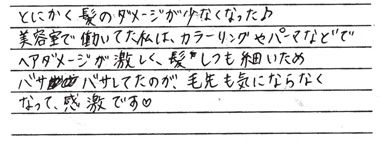 とにかく髪のダメージが少なくなった♪
美容室で働いてた私は、カラーリングやパーマなどで
ヘアダメージが激しく、髪しつも細いため
バサバサしてたのが、毛先も気にならなく
なって、感激です♡